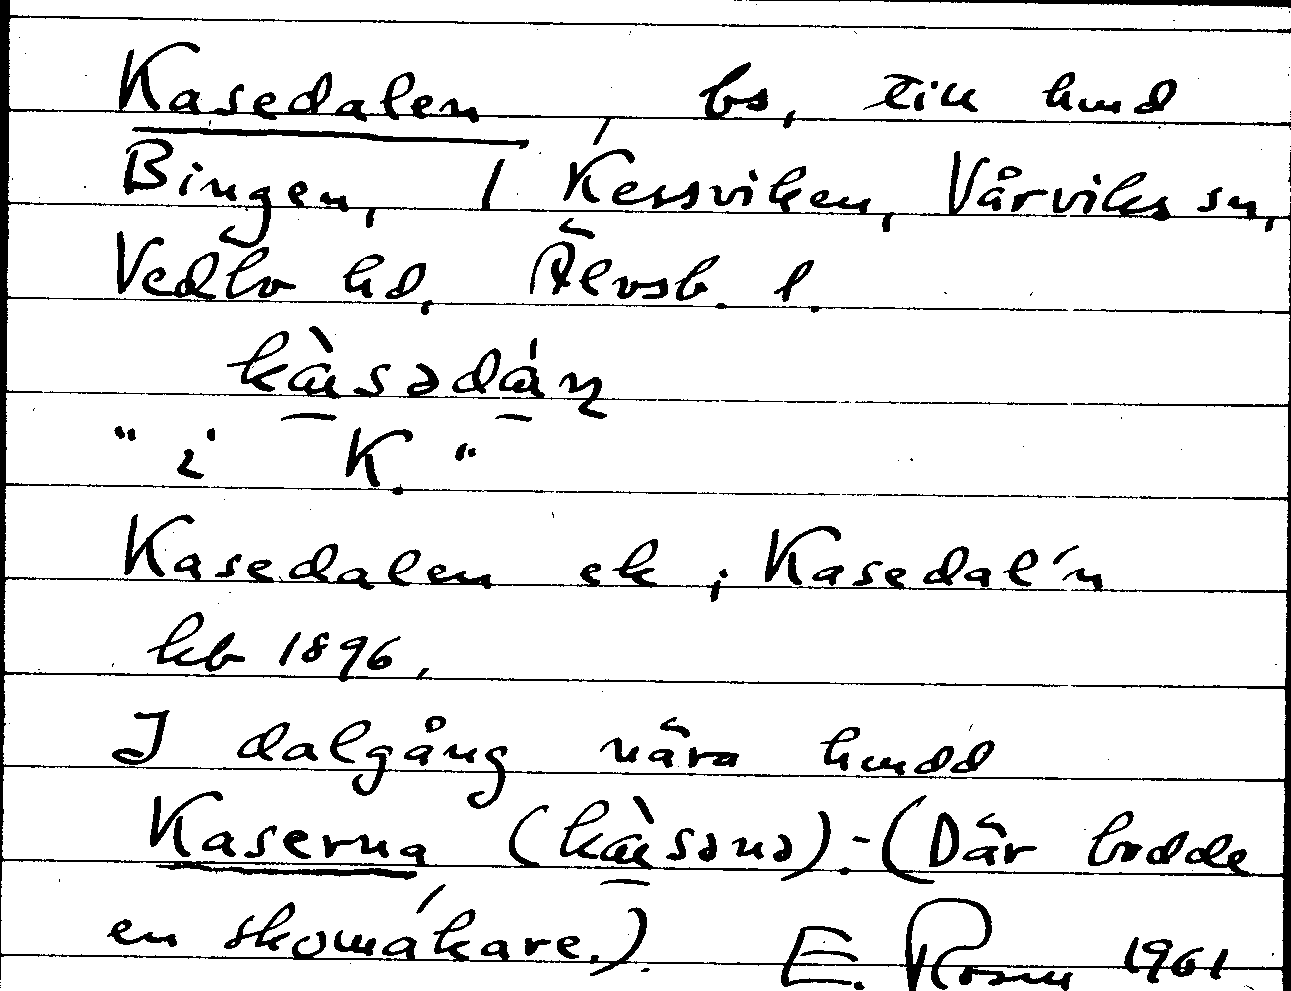 Kasedalen, bs, till hmd
Bingen, 1 Kessviken, Vårviks sn,
Vedbo hd, Älvsb. l.
kàsədáņ
" i K. "
Kasedalen ek; Kasedal'n
kb 1896.
I dalgång nära hmdd
Kaserna (kàsənə).-(Där bodde
en skomakare.). E. Rosm 1961